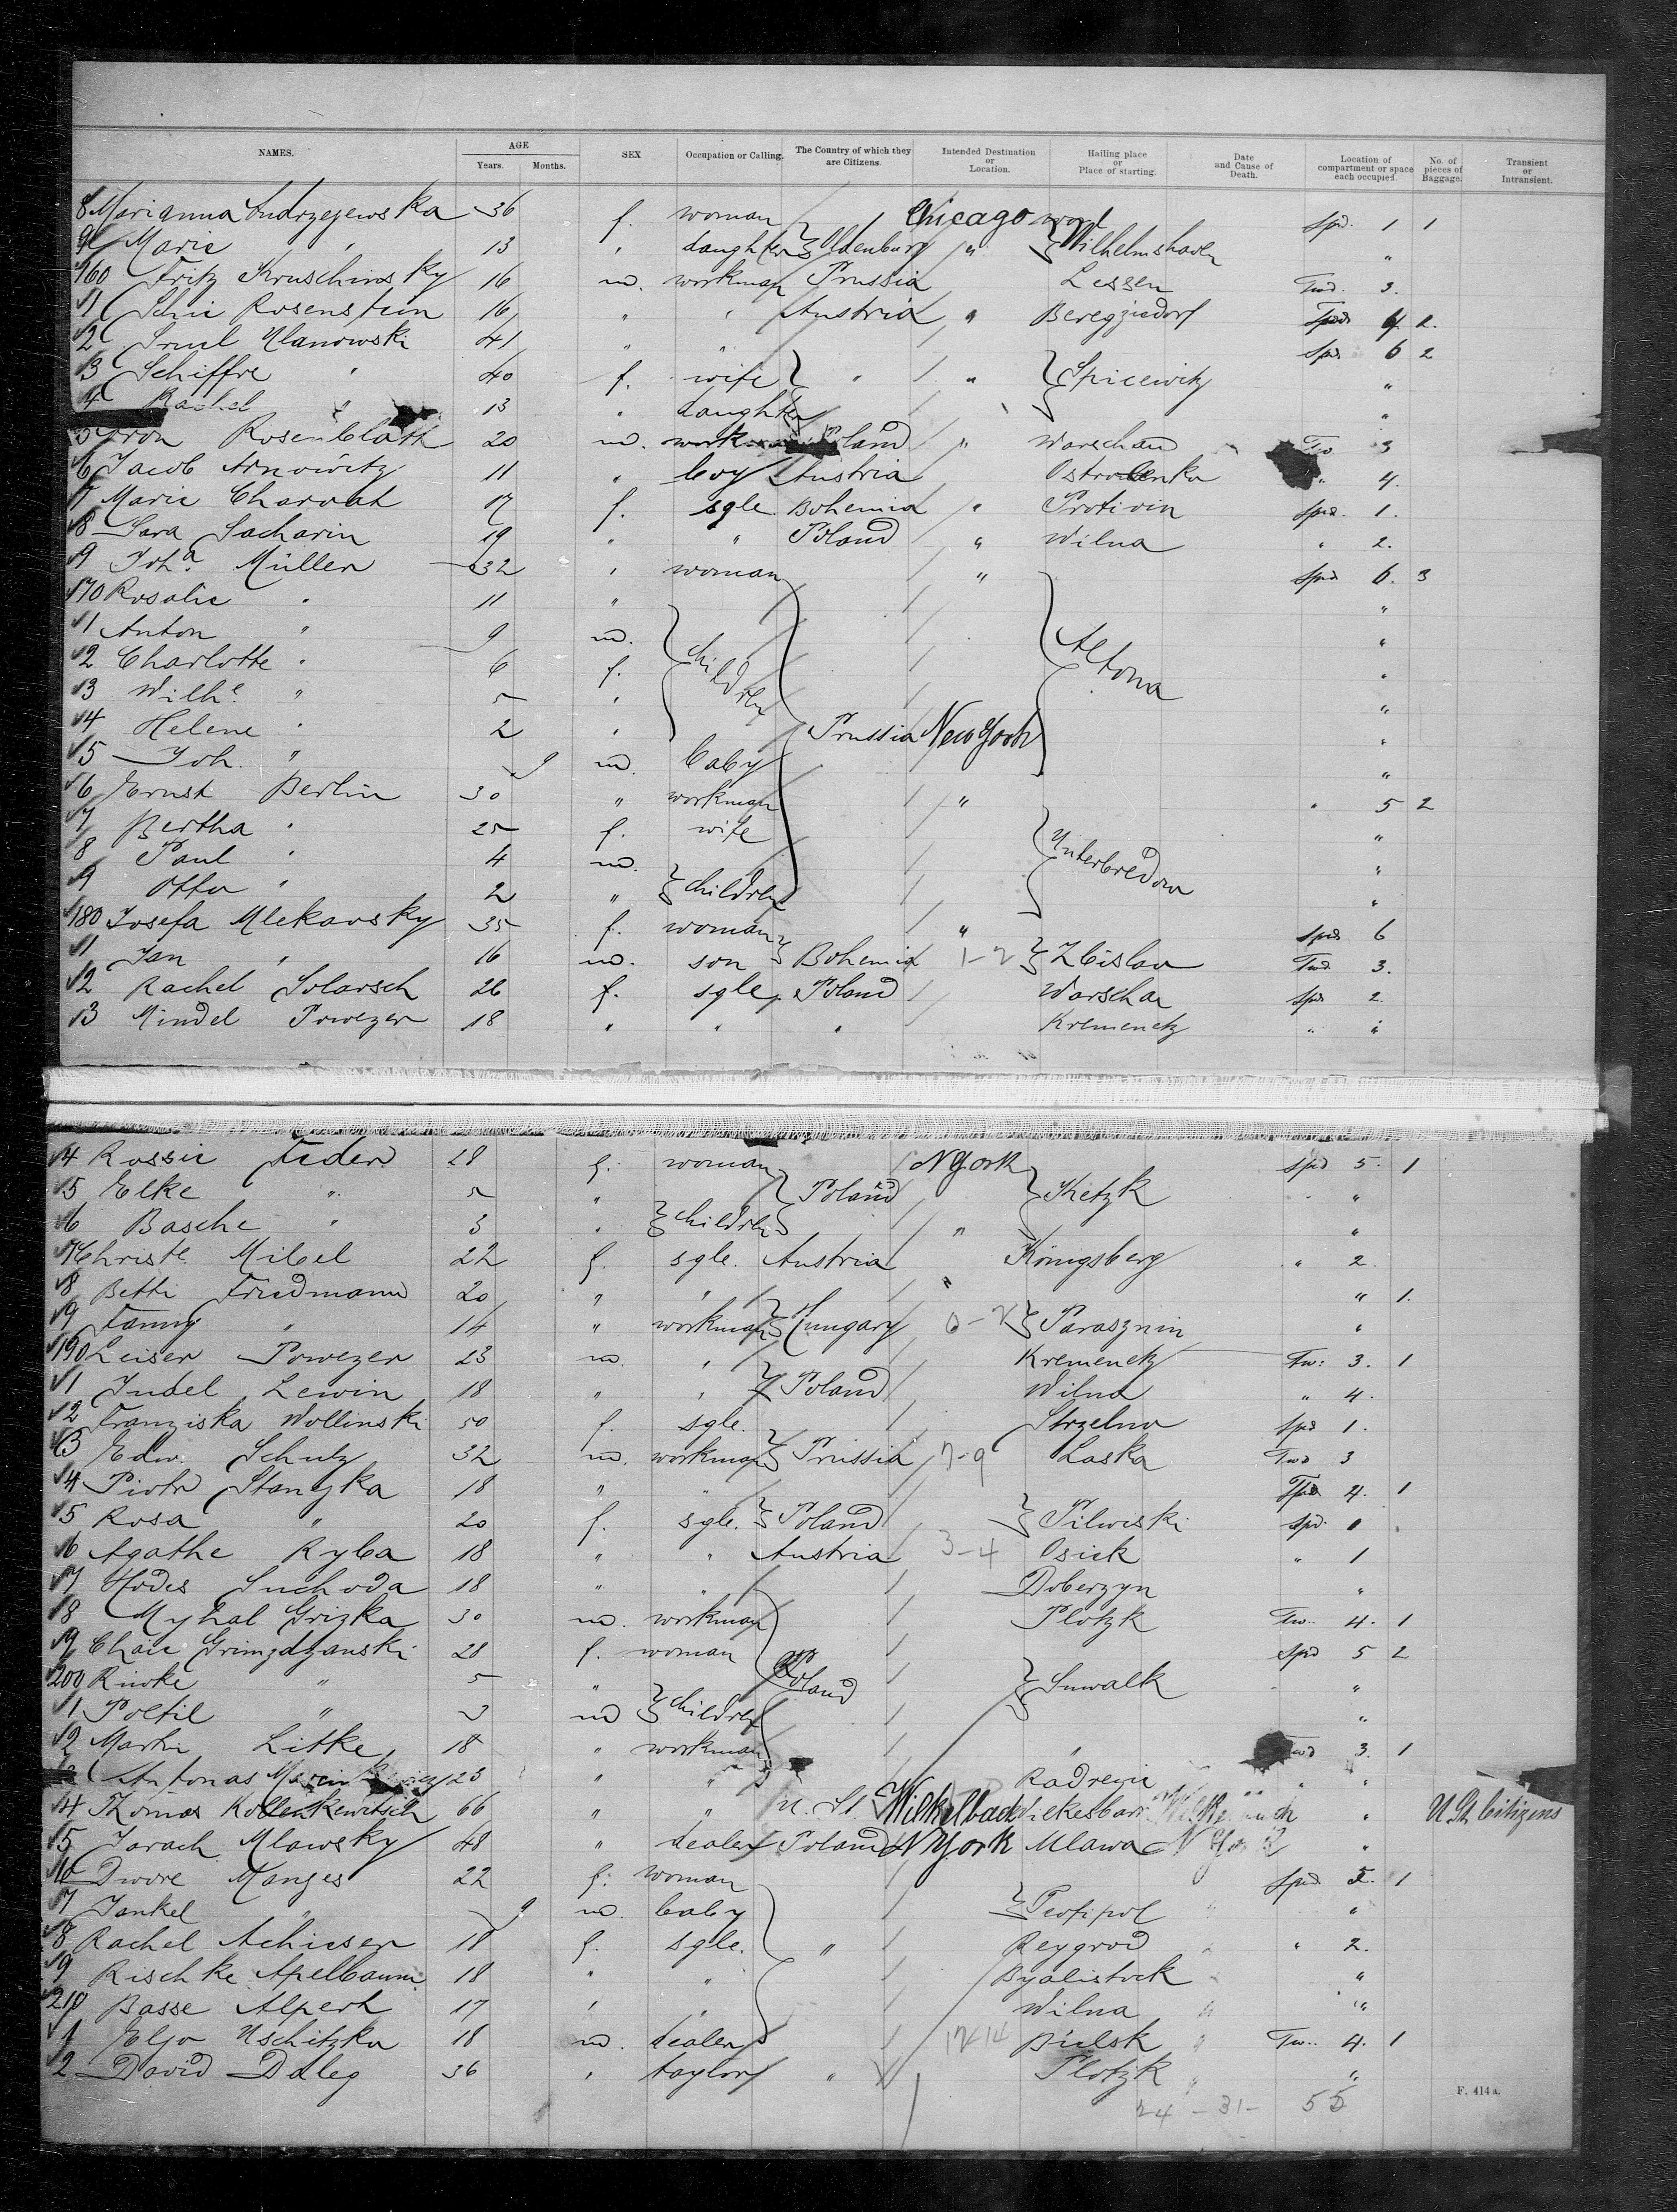 NAMES. AGE Years. Months. SEX Occupation or Calling. The Country of which they are Citizens. Intended Destination or Location. Hailing place or Place of starting. Date and Cause of Death. Location of compartment or space each occupied. No. of pieces of Baggage. Transient or Intransient.
8 Marianna Andrzejewska 36 f. woman Chicago Spd. 1 1
9 Marie " 13 " daughter Oldenburg " Wilhelmshaven "
160 Fritz Kruschinsky 16 m. workman Prussia Lessen Twd. 3.
1 Rosenstein 16 " " Austria " 4. 2.
2 Srul Ulanowski 41 " " Spd 6 2
3 Schiffre " 40 f. wife " " Spicewitz "
4 Rachel " 13 " daughter "
5 Aron Rosenblath 20 m. workman Poland " Warschau Tw 3
6 Jacob Arnowitz 11 " boy Austria Ostrolenka " 4.
7 Marie Charvat 17 f. sgle. Bohemia " Protivin Spd. 1.
8 Sara Sacharin 19 " " Poland " Wilna " 2.
9 Joha. Müller 32 " woman " Spd 6. 3
170 Rosalie " 11 " "
1 Anton " 9 m. children Altona "
2 Charlotte " 6 f. "
3 Wilhe. " 5 " "
4 Helene " 2 " Prussia New York "
5 Joh. " 9 m. baby "
6 Ernst Berlin 30 " workman " " 5 2
7 Bertha " 25 f. wife Unterbredow "
8 Paul " 4 m. "
9 Otto " 2 " children "
180 Josefa Mlekavsky 35 f. woman " Spd 6
1 Jan " 16 m. son Bohemia 1-2 Zbislav Twd. 3.
2 Rachel Solarsch 26 f. sgle. Poland Warschau Spd 2.
3 Mindel Powezer 18 " " " Kremenetz " "
4 Rossie Feder 28 f. woman N York Spd 5. 1
5 Elke " 5 " Poland " "
6 Basche " 3 " children " "
7 Christe. Mibel 22 f. sgle. Austria Königsberg " 2.
8 Betti Friedmann 20 " " " " 1.
9 Fanny " 14 " workman Hungary 0-2 Parasznin "
190 Leiser Powezer 23 m. " Kremenetz Tw: 3. 1
1 Judel Lewin 18 " " Poland Wilna " 4.
2 Franziska Wollinski 50 f. sgle. Strzelno Spd 1.
3 Edw. Schulz 32 m. workman Prussia 7-9 Laska Twd 3
4 Piotr Stanzka 18 " " 4. 1
5 Rosa " 20 f. sgle. Poland Pilwiski Spd. 1
6 Agathe Ryba 18 " " Austria 3-4 Osiek " 1
7 Hodes Suchoda 18 " " Doberzyn "
8 Myhal Grizka 30 m. workman Plotzk Tw. 4. 1
9 Chaie Grimzdzanski 28 f. woman Poland Spd 5 2
200 Riwke " 5 " Suwalk " "
1 Poltil " 3 m children "
2 Martin Litke 18 " workman " Twd 3. 1
Antonas 23 " " " "
4 Thomas Kollenkewitsch 66 " " U. St. Wilkesbarre " U. St. Citizens
5 Jarach Mlawsky 48 " dealer Poland N York Mlawa N York "
6 Dwore Manges 22 f. woman Spd. 5. 1
7 Jankel " 9 m. baby Teofipol "
8 Rachel Achieser 18 f. sgle. " Reygrod " 2.
9 Rischke Apelbaum 18 " " Byalistock "
210 Basse Alpert 17 " " Wilna "
1 Eljo Uschitzka 18 m. dealer Bielsk Tw. 4. 1
2 David Daleg 36 " taylor " Plotzk "
24 - 31 - 55
F. 414a.